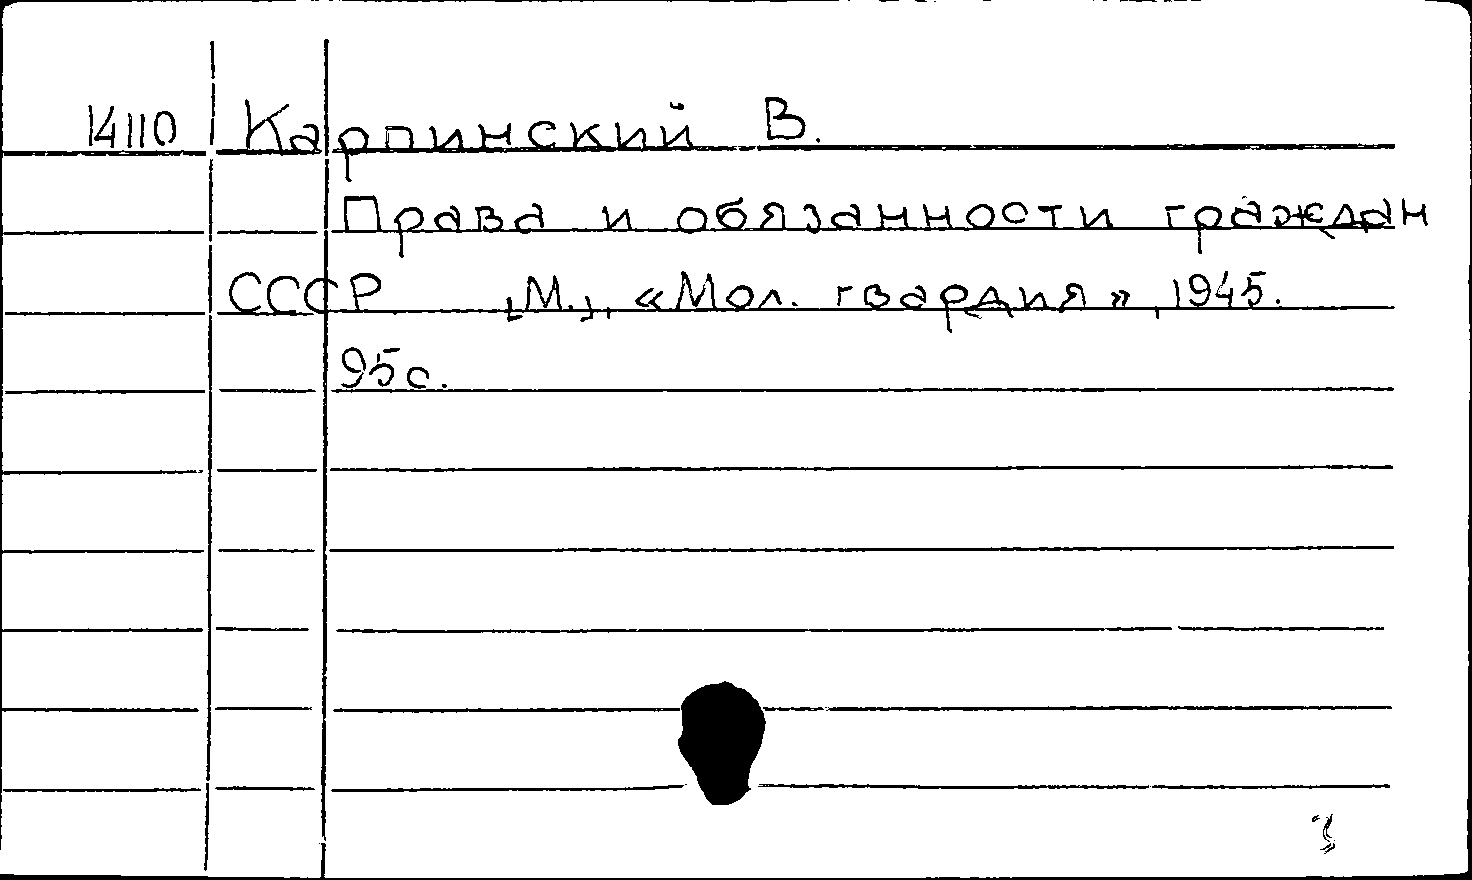 14110 Карпинский В.
Права и обязанности граждан
СССР [М.], «Мол. гвардия», 1945.
95 с.